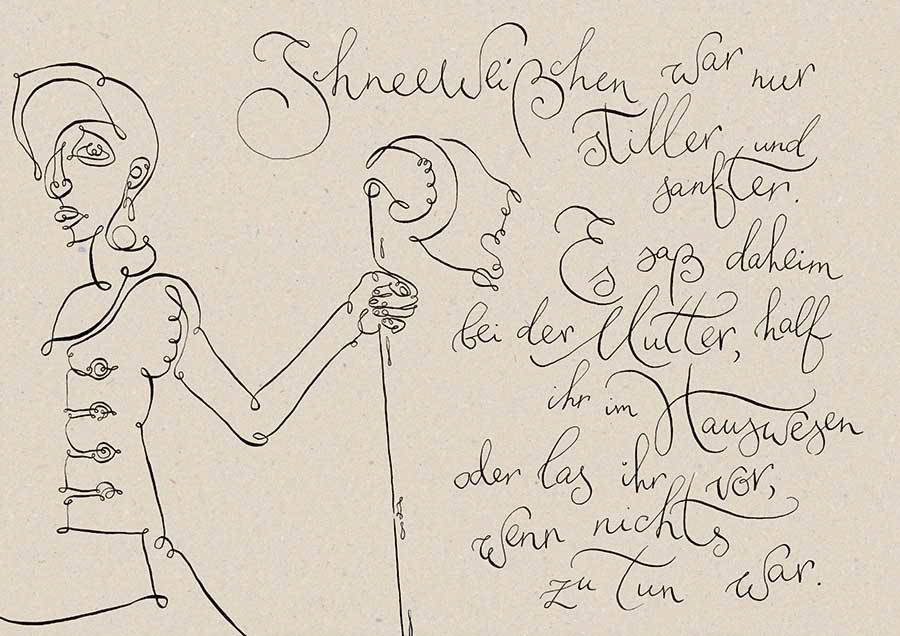 Schneeweißchen war nur
stiller und
sanfter.
Es saß daheim
bei der Mutter, half
ihr im Hauswesen
oder las ihr vor,
wenn nichts
zu tun war.